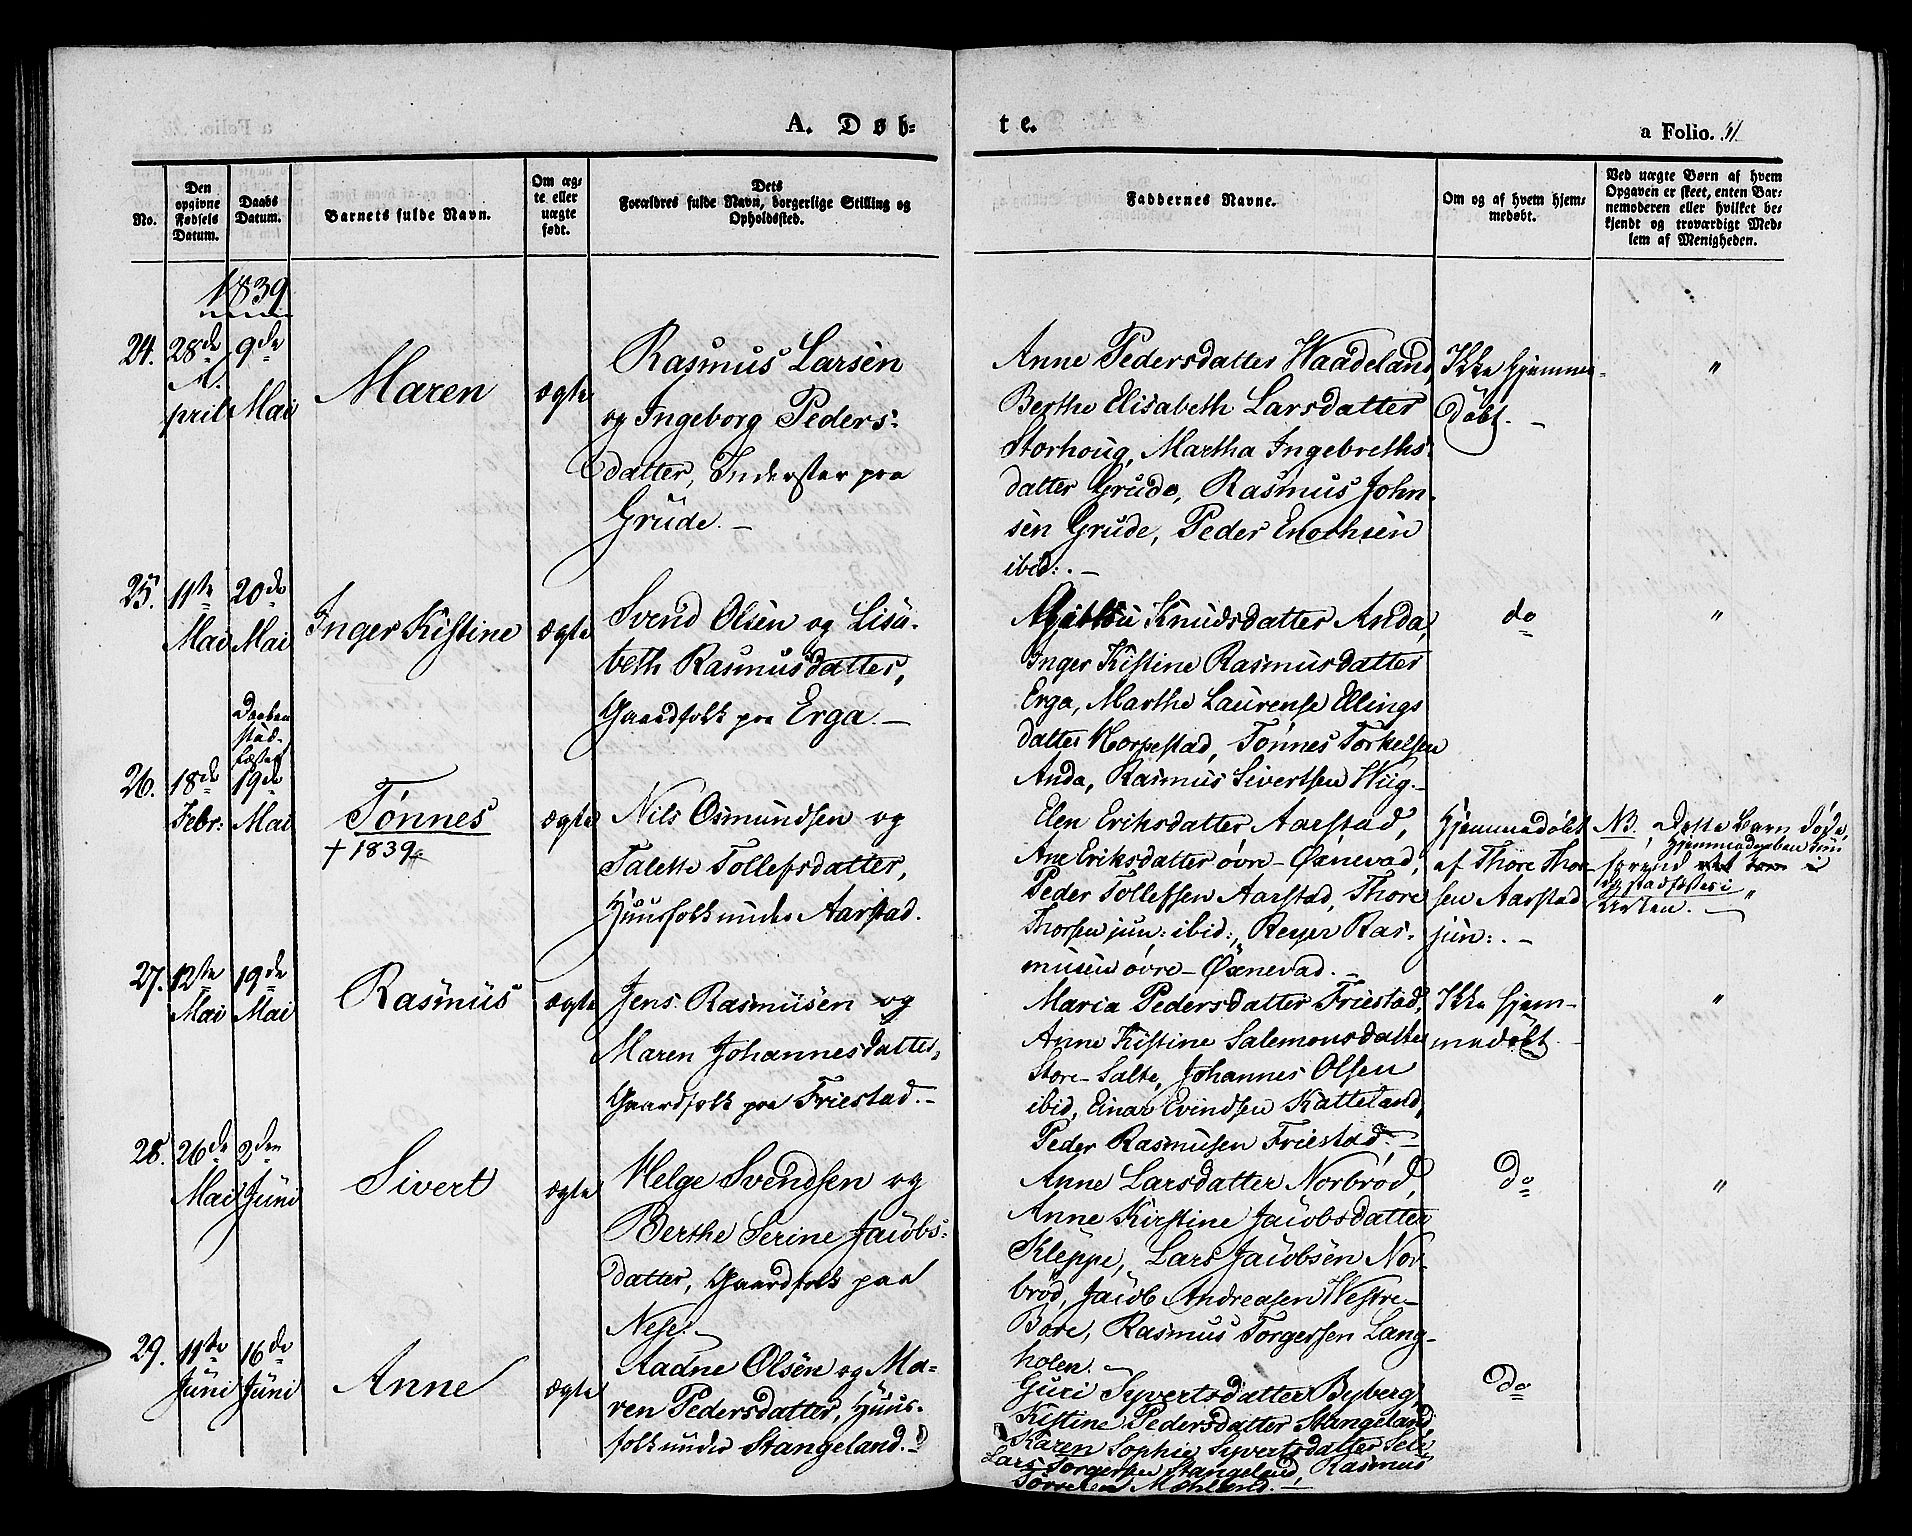 A. Døb-
te.
a Folio. 51
No.
Den opgivne Fødsels Datum.
Daabs Datum.
Barnets fulde Navn.
Om ægte eller uægte født.
Dets
Forældres fulde Navn, borgerlige Stilling og
Opholdssted.
Faddernes Navne.
Om og af hvem hjem-
medøbt.
Ved uægte Børn af hvem
Opgaven er skeet, enten Bar-
nemoderen eller hvilket be-
kjendt og troværdigt Med-
lem af Menigheden.
1839
24. 28de April 9de Mai
Maren
ægte
Rasmus Larsen
og Ingeborg Peders-
datter, Inderster paa
Grude. –
Anne Pedersdatter Waadeland,
Berthe Elisabeth Larsdatter
Storhoug, Martha Ingebreths-
datter Grude, Rasmus John-
sen Grude, Peder Enochsen
ibid:. –
Ikke hjemme-
døbt. –
"
25. 11te Mai 20de Mai
Inger Kistine
ægte
Svend Olsen og Lisa-
beth Rasmusdatter,
Gaardfolk paa Erga. –
Knudsdatter Anda,
Inger Kistine Rasmusdatter
Erga, Marthe Laurense Ellings
datter Horpestad, Tønnes Torkelsen
Anda, Rasmus Sivertsen Wiig. –
do
"
Daaben
stad-
fæstet
26. 18de Febr: 19de Mai
Tønnes
† 1839
ægte
Nils Osmundsen og
Talette Tollefsdatter,
Huusfolk under Aarstad.
Elen Eriksdatter Aarstad,
Ane Eriksdatter øvre-Øxnevad,
Peder Tollefsen Aarstad, Thore
Thorsen jun: ibid:, Reyer Ras-
musen øvre-Øxnevad. –
Hjemmedøbt
af Thore Thor-
sen Aarstad
jun:. –
NB. Dette Barn døde,
hjemmedaaben
førend
stadfæstes i
Kirken. –
"
27. 12te Mai 19de Mai
Rasmus
ægte
Jens Rasmusen og
Maren Johannesdatter,
Gaardfolk paa Friestad. –
Maria Pedersdatter Friestad,
Anne Kistine Salemonsdatter
Store-Salte, Johannes Olsen
ibid, Einar Evindsen Katteland,
Peder Rasmusen Friestad. –
Ikke hjem-
medøbt.
"
28. 26de Mai 2den Juni
Sivert
ægte
Helge Svendsen og
Berthe Serine Jacobs-
datter, Gaardfolk paa
Nese. –
Anne Larsdatter Norbrød,
Anne Kirstine Jacobsdatter
Kleppe, Lars Jacobsen Nor-
brød, Jacob Andreasen Westre-
Bore, Rasmus Torgersen Lang-
holen. –
Do
"
29. 11te Juni 16de Juni
Anne
ægte
Aadne Olsen og Ma-
ren Pedersdatter, Huus-
folk under Stangeland. –
Guri Syvertsdatter Byberg,
Kistine Pedersdatter Stangeland
Karen Sophie Syvertsdatter Sele
Lars Torgersen Stangeland, Rasmus
Do